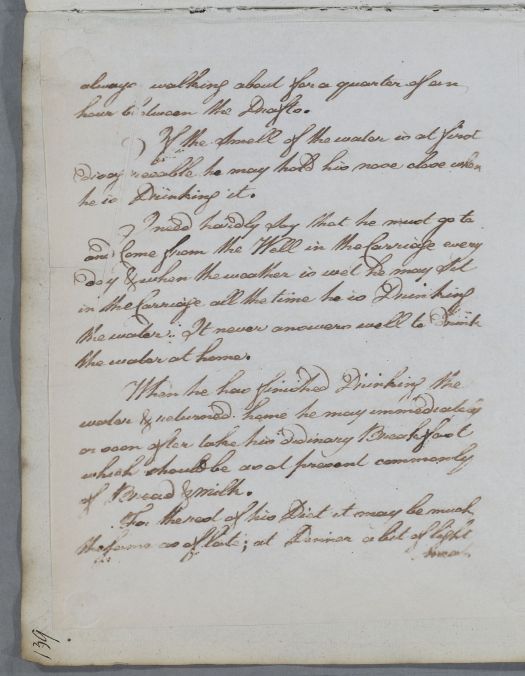 always walking about for a quarter of an
hour between the Drafts.
If the smell of the water is at first
disagreeable he may hold his nose close when
he is Drinking it.
I need hardly say that he must go to
and come from the Well in the Carriage every
day & when the weather is wet he may sit
in the Carriage all the time he is Drinking
the water. It never answers well to Drink
the water at home.
When he has finished Drinking the
water & returned home he may immediately
or soon after take his ordinary Breakfast
which should be as at present commonly
of Bread & milk.
For the rest of his Diet it may be much
the same as of late; at Dinner a bit of light
meat
139